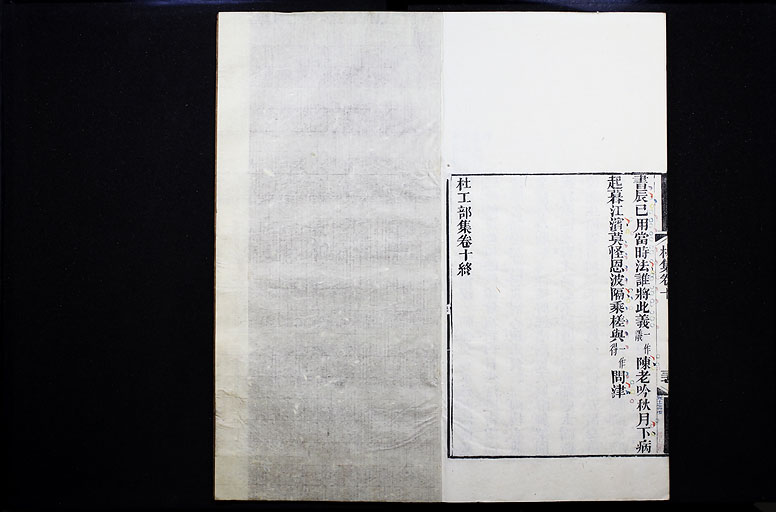 杜集卷十
書辰已用當時法誰將此義一作議陳老吟秋月下病
起暮江濱莫怪恩波隔乘槎與一作得問津
杜工部集卷十終